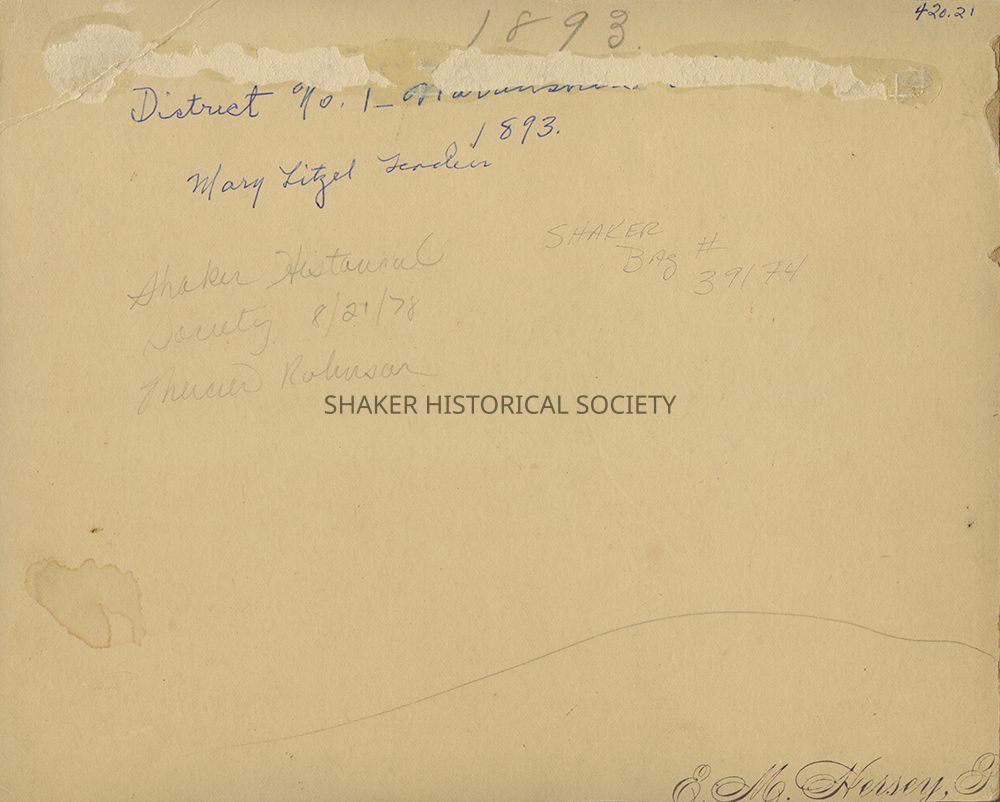 1893.
420.21
District No. 1 –
1893.
Mary Litzel
Shaker Historical
Society 8/21/78
Robinson
SHAKER
Bag #
39174
SHAKER HISTORICAL SOCIETY
E. M. Hersey,